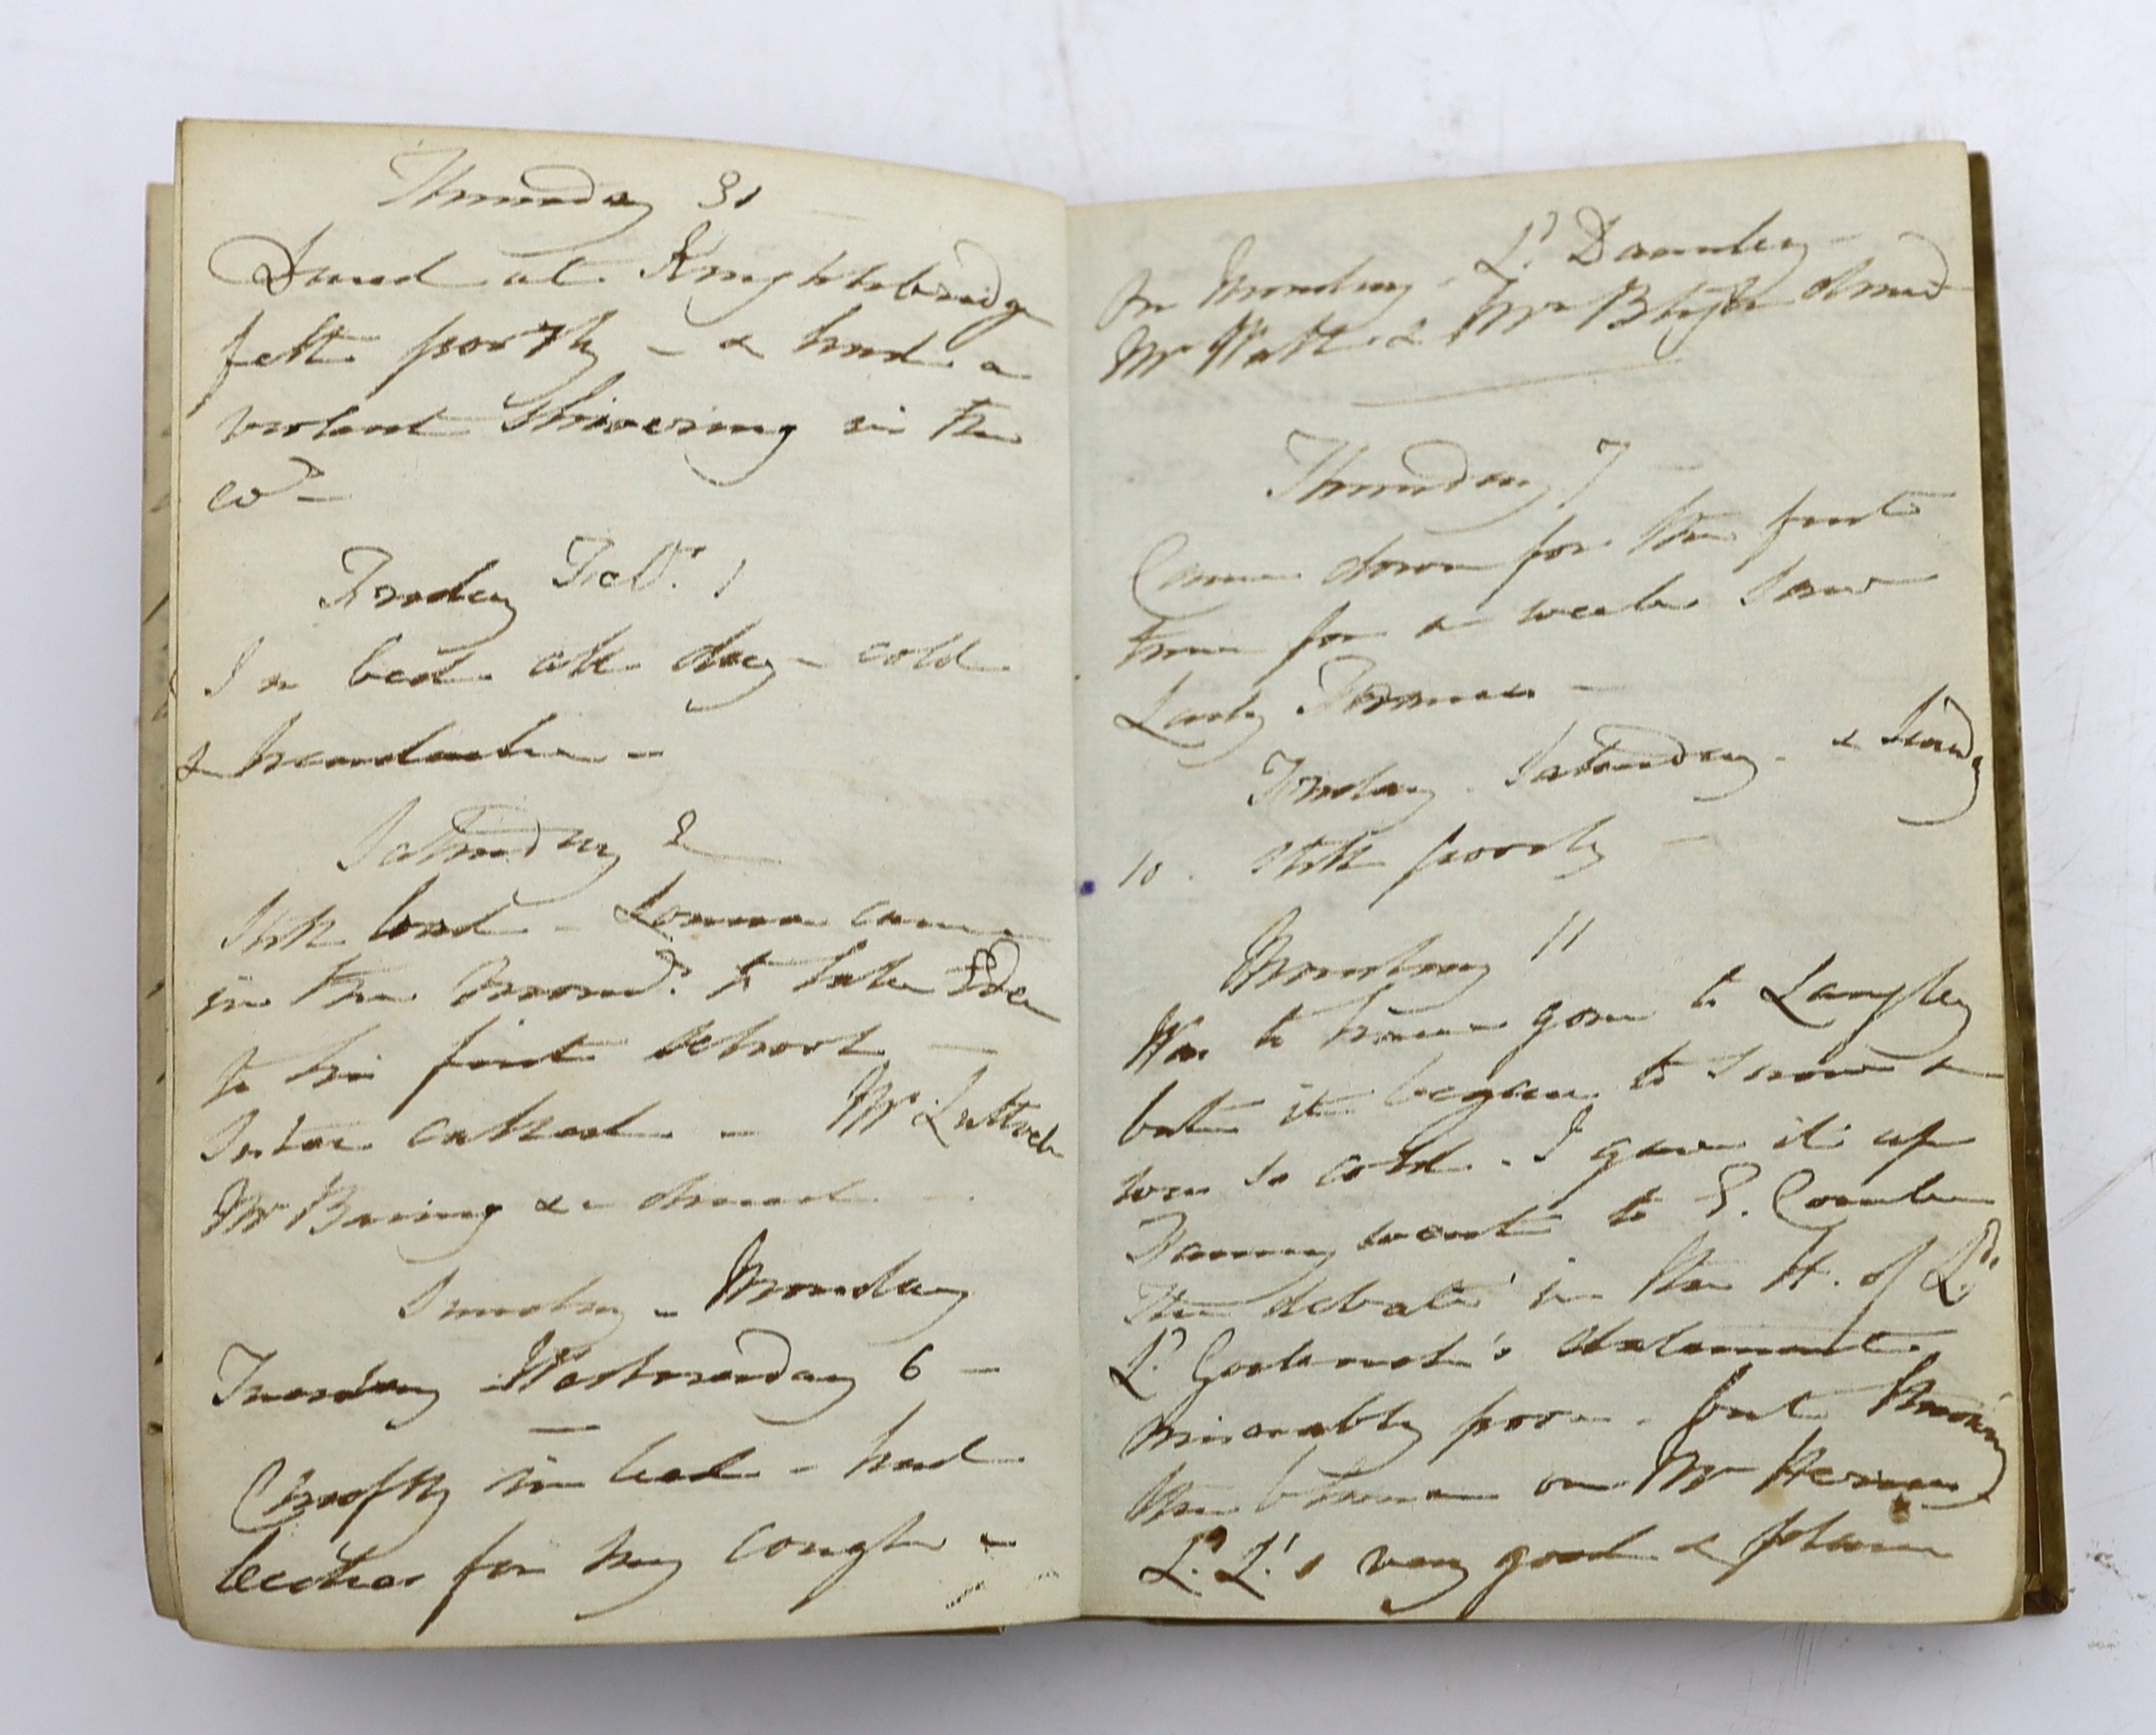 Thursday 31
Dined at Knightsbridge
felt poorly - & had a
violent Shivering in the
Friday Feb. 1
In bed all day - cold
& headache -
Saturday 2
Still bad - came
in the morn.g to take
to his first school -
called - Mr Luttrell
Mr Baring &c dined -
Sunday - Monday
Tuesday Wednesday 6 -
Chiefly in bed - had
leeches for my cough -
On Monday Ld Darnley -
Mr Watt & Mr Bligh dined
Thursday 7
Came down for the first
time for a week. Saw
Lady
Friday. Saturday. & Sunday
10. still poorly -
Monday 11
Was to have gone to Langley
but it began to snow &
was so cold - I gave it up
Fanny went to S. Combe
The debate in the H. of Lds
Ld Goderich's statement
miserably poor - but throwing
the blame on Mr Herries
Ld L's very good & plain